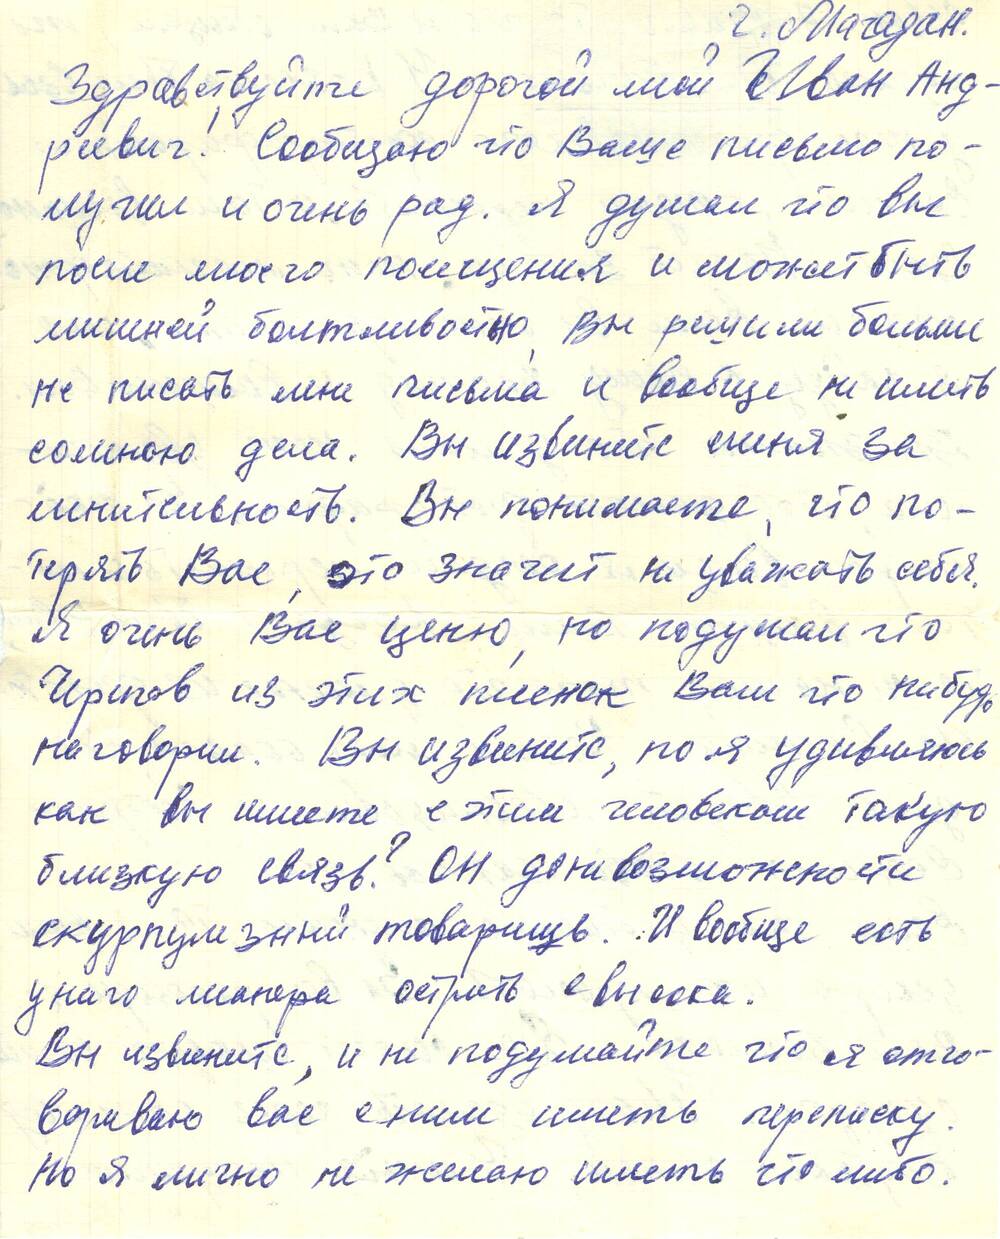 г. Магадан.
Здравствуйте дорогой мой Иван Анд-
реевич! Сообщаю что Ваше письмо по-
лучил и очень рад. Я думал что вы
после моего посещения и может быть
лишней болтливостью, Вы решили больше
не писать мне письма и вообще не иметь
сомною дела. Вы извините меня за
мнительность. Вы понимаете, что по-
терять Вас, это значит не уважать себя.
Я очень Вас ценю, но подумал что
из этих пленок Вам что нибудь
наговорил. Вы извините, но я удивляюсь
как вы имеете с этим человеком такую
близкую связь? Он доневозможности
скурпулезный товарищь. И вообще есть
унего манера острить свысока.
Вы извините, и не подумайте что я отго-
вориваю вас сним иметь переписку.
Но я лично не желаю иметь что либо.